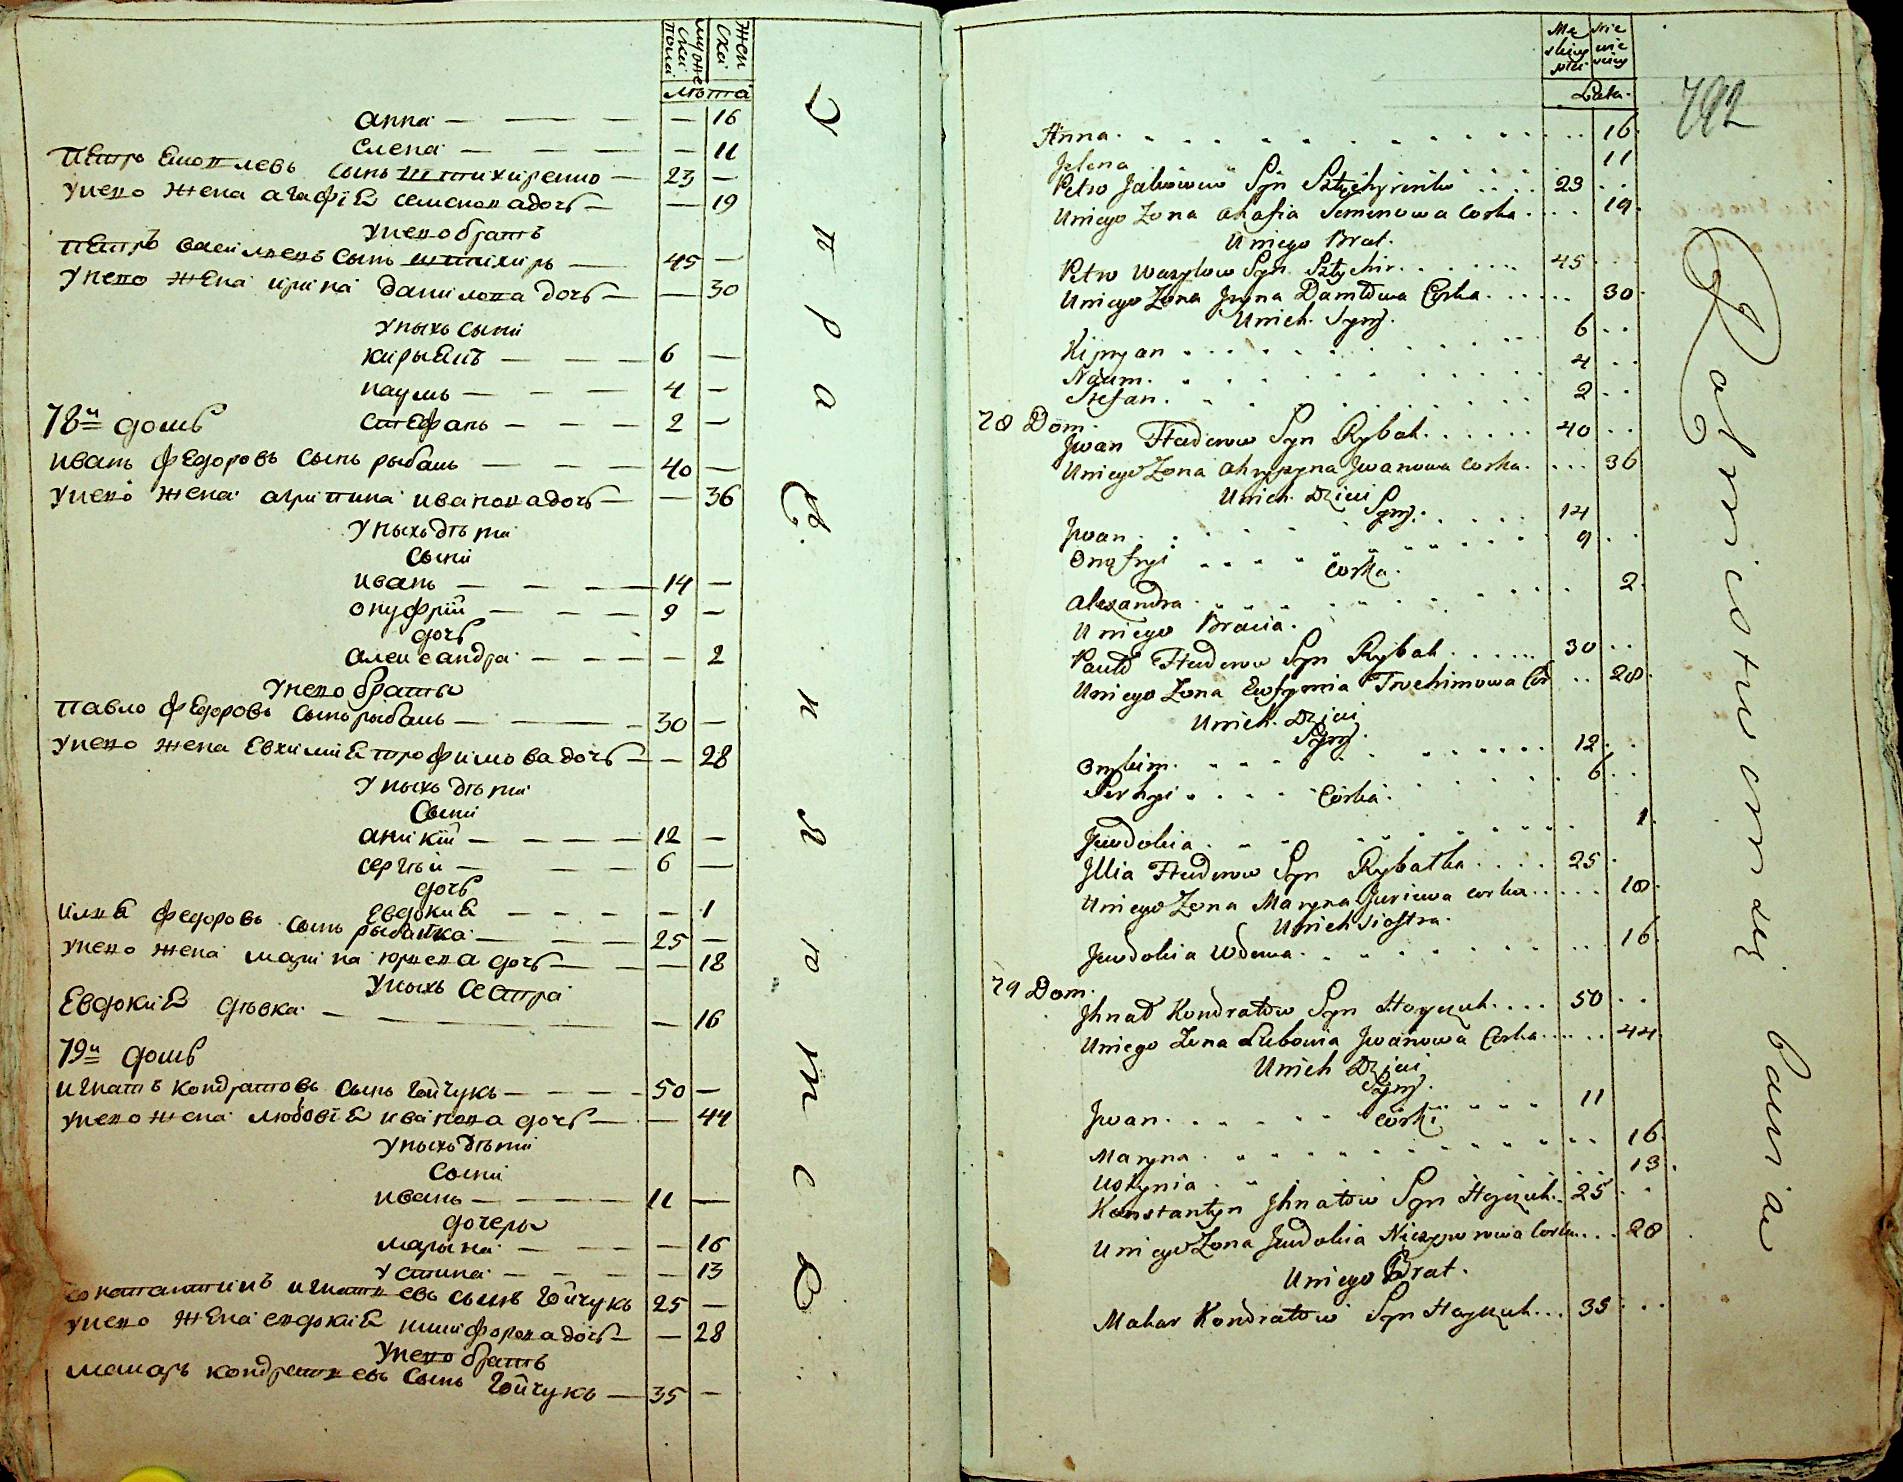 мужеска пола
женска
лѣта
анна — — — — — 16
елена — — — — 11
петро яковлевъ сынъ штихиренко — 23 —
у него жена агафія семенова дочь — — 19
у него братъ
петръ васильевъ сынъ штихиръ — 45 —
у него жена ирина данилова дочь — — 30
у ныхъ сыни
кирьянъ — — — 6 —
наумъ — — — 4 —
78й домъ
стефанъ — — — 2 —
иванъ федоровъ сынъ рыбакъ — — — 40 —
у него жена агрипина иванова дочь — — 36
у ныхъ дѣти
сыни
иванъ — — — — 14 —
онуфрій — — — 9 —
дочь
александра — — — — 2
у него браты
павло федоровъ сынъ рыбакъ — — — 30 —
у него жена евхимія трофимова дочь — — 28
у ныхъ дѣти
сыни
аникій — — — — 12 —
сергѣй — — — 6 —
дочь
евдокия — — — — 1
илия федоровъ сынъ рыбалка — — — 25 —
у него жена марина юриева дочь — — — 18
у ныхъ сестра
евдокия дѣвка — — — — — 16
79й домъ
игнатъ кондратовъ сынъ гойчукъ — — — 50 —
у него жена любовія иванова дочь — — 44
у ныхъ дѣти
сыни
иванъ — — — — 11 —
дочеры
марина — — — — 16
устина — — — — 13
константинъ игнатиевъ сынъ гойчукъ 25 —
у него жена евдокия никифорова дочь — — 28
у него братъ
макаръ кондратиевъ сынъ гойчукъ — 35 —
Управляти
792
Lata
Anna 16
Jelena 11
Petro Jakowiow Syn Sztychirenko 23
U niego Zona Ahafia Semenowa Corka 19
U niego Brat.
Petro Wasylow Syn Sztychir 45
U niego Zona Jryna Daniłowa Corka 30
U nich Syny
Kipryan 6
Naum 4
Stefan 2
78 Dom
Jwan Ftederow Syn Rybak 40
U niego Zona Ahrypyna Jwanowa Corka 36
U nich Dzieci
Syny
Jwan 14
Onofryi 9
Corka
Alexandra 2
U niego Bracia
Pawło Ftederow Syn Rybak 30
U niego Zona Ewfymia Trochimowa Cor 28
U nich Dzieci
Syny
Onykim 12
Serhyi 6
Corka
Jewdokia 1
Jllia Ftederow Syn Rybałka 25
U niego Zona Maryna Juriewa Corka 18
U nich Siostra
Jewdokia Wdowa 16
79 Dom
Jhnat Kondratow Syn Hoyczuk 50
U niego Zona Lubowia Jwanowa Corka 44
U nich Dzieci
Syny
Jwan 11
Corki
Maryna 16
Ustynia 13
Konstantyn Jhnatow Syn Hoyczuk 25
U niego Zona Jewdokia Niczyporowa Corka 28
U niego Brat.
Makar Kondratow Syn Hoyczuk 35